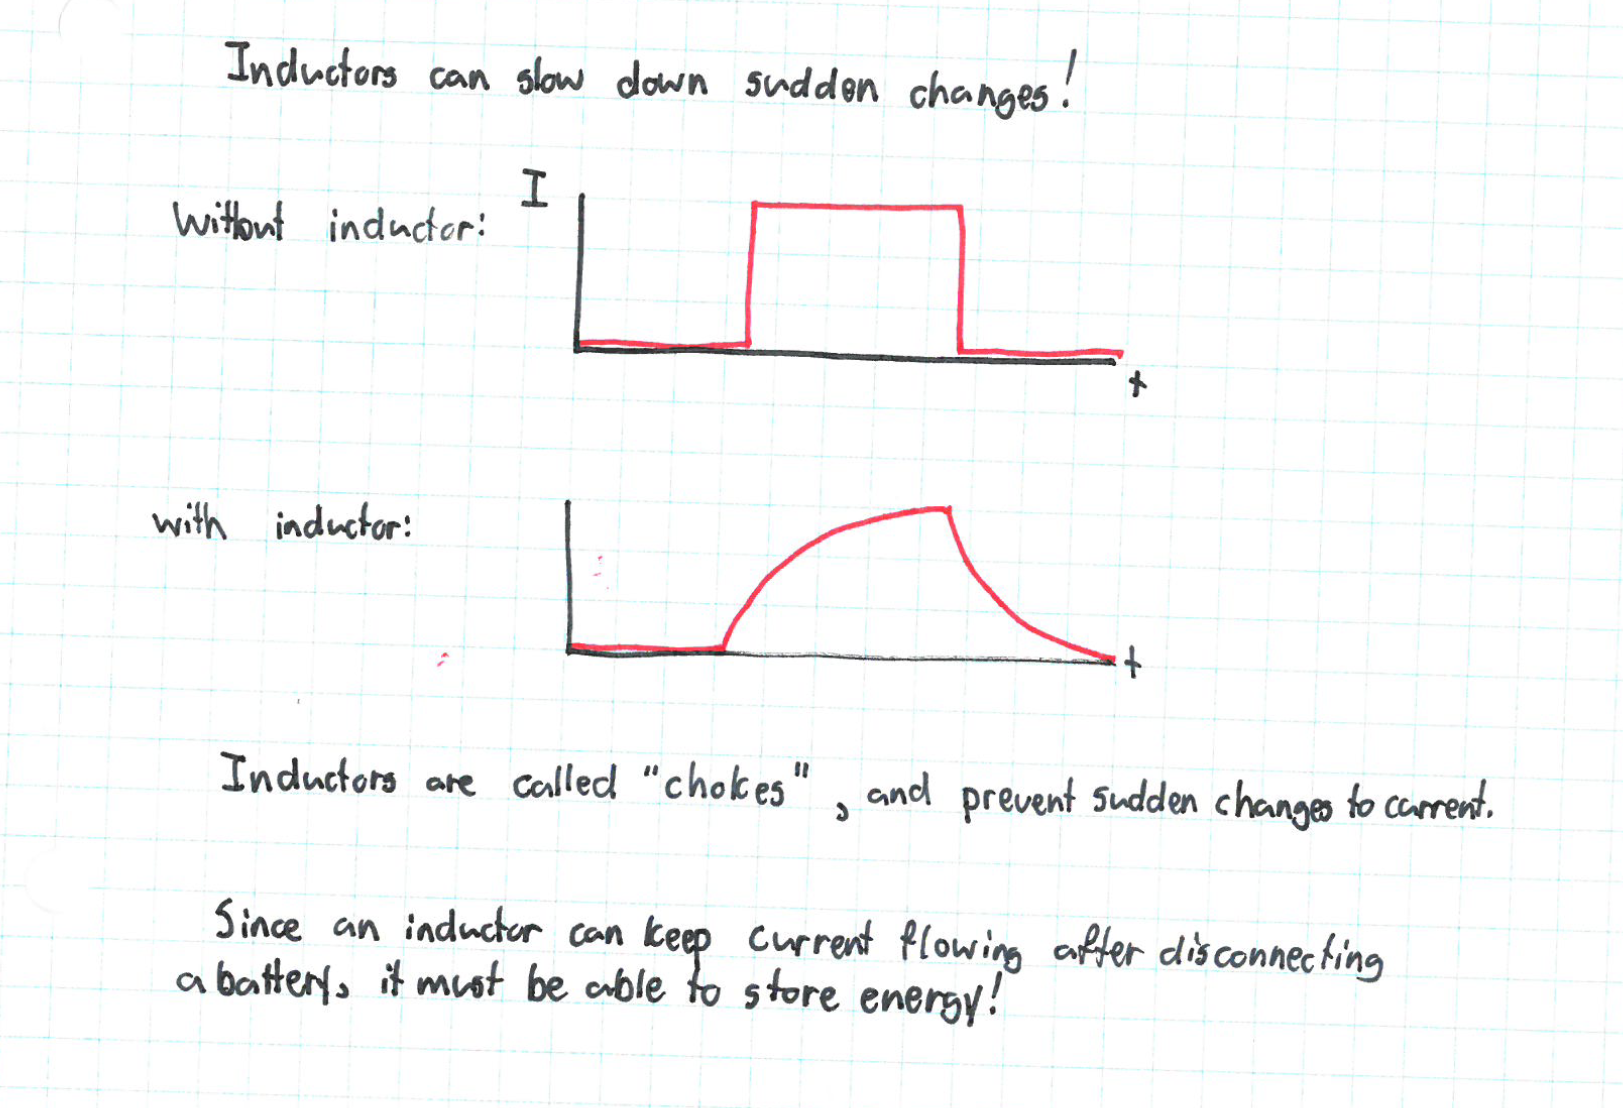 Inductors can slow down sudden changes!
I
Without inductor:
t
with inductor:
t
Inductors are called "chokes", and prevent sudden changes to current.
Since an inductor can keep current flowing after disconnecting
a battery, it must be able to store energy!